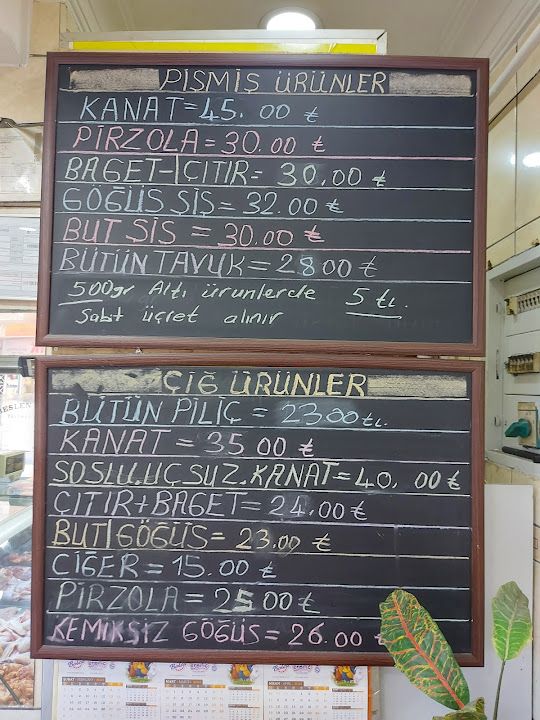 PİŞMİŞ ÜRÜNLER
KANAT=45.00 ₺
PİRZOLA=30.00 ₺
BAGET-ÇITIR=30.00 ₺
GÖĞÜS ŞİŞ=32.00 ₺
BUT ŞİŞ=30.00 ₺
BÜTÜN TAVUK=28.00 ₺
500gr Altı ürünlerde 5 tl.
Sabit ücret alınır
ÇİĞ ÜRÜNLER
BÜTÜN PİLİÇ = 23.00 tl.
KANAT = 35.00 ₺
SOSLU.UÇSUZ.KANAT=40.00 ₺
ÇITIR+BAGET=24.00 ₺
BUT|GÖĞÜS=23.00 ₺
CİĞER=15.00 ₺
PİRZOLA=25.00 ₺
KEMİKSİZ GÖĞÜS=26.00 ₺